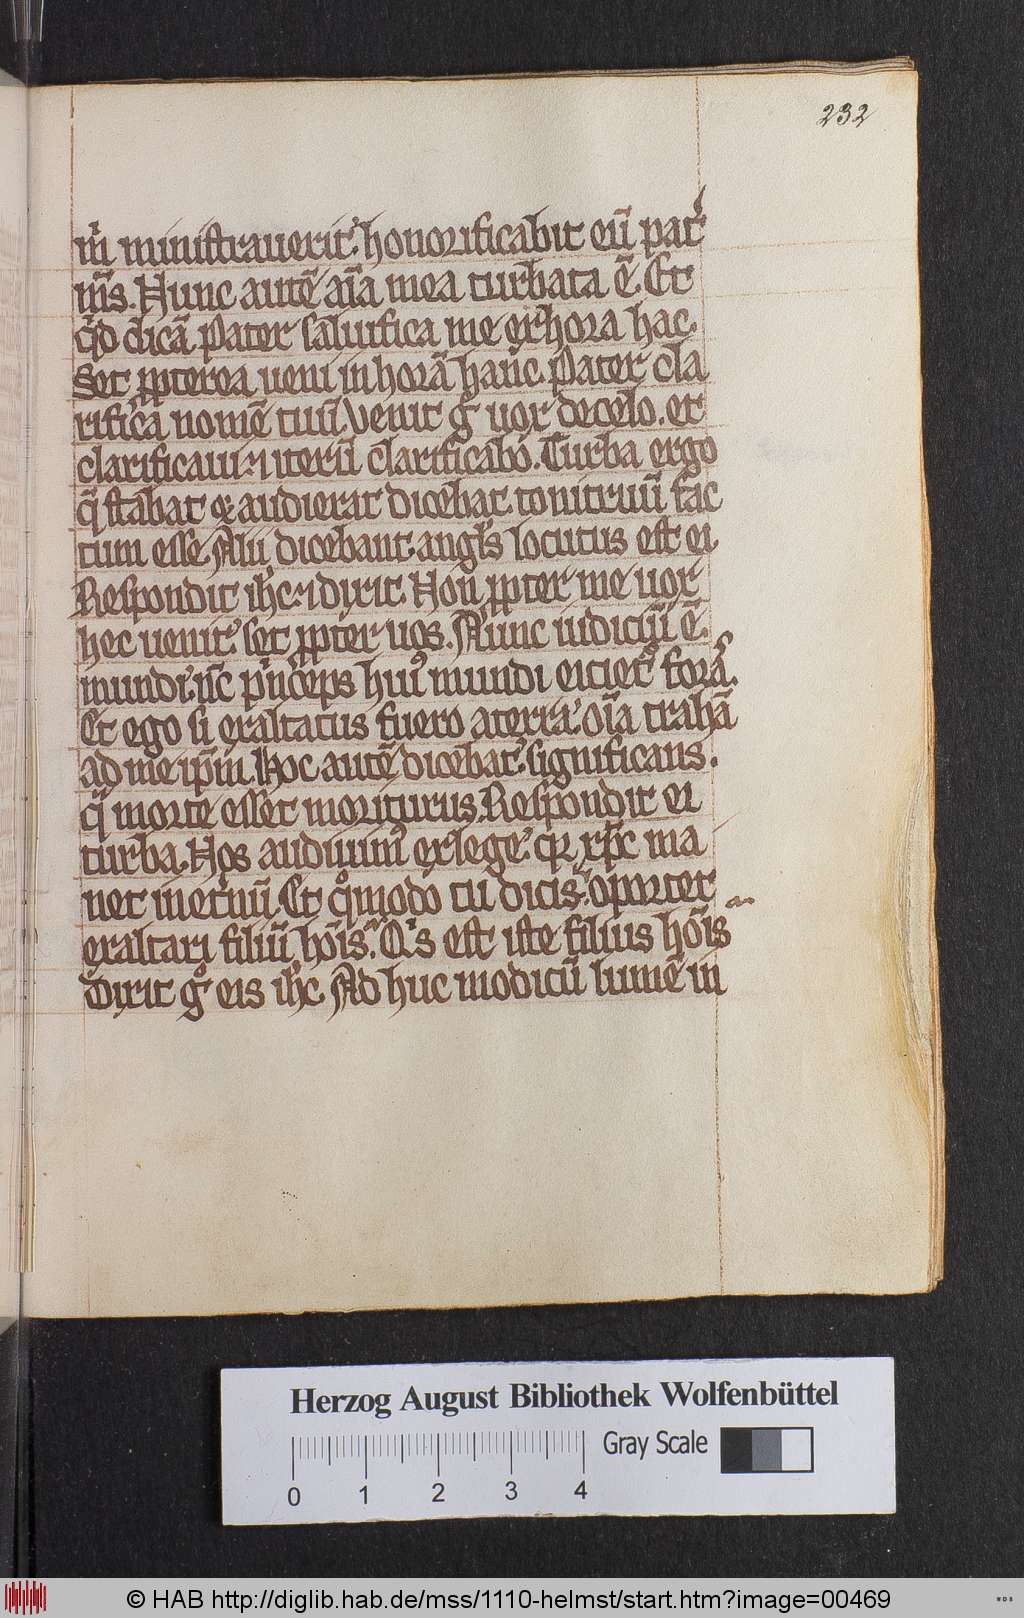 232
m̄ miniſtrauerit. honorificabit eū pat̄
m̄s. Nunc autē aīa mea turbata ē. Et
q̄d dicā. Pater ſaluifica me ex hora hac.
Set ꝓpterea ueni in horā hanc. Pater cla
rifica nomē tuū. Venit g̊ uox de celo. et
clarificaui ⁊ iterū clarificabo. Turba ergo
q̄ ſtabat & audierat dicebat. tonitruū fac
tum eſſe. Alii dicebant. angl̄s locutus eſt ei
Reſpondit ih̄c ⁊ dixit. Non ꝓpter me uox
hec uenit. ſet ꝓpter uos. Nunc iudiciū ē.
mundi. nc̄ pⁱnceps huiꝰ mundi eicietᷣ foraſ.
Et ego ſi exaltatus fuero a terra. oīa trahā
ad me ip̄m. Hoc autē dicebat. ſignificans.
q̄ morte eſſet moriturus. Reſpondit ei
turba. Nos audiuimꝰ ex lege. quia xp̄c ma
net in et̄nū. Et qͦmodo tu dicis. oportet
exaltari filiū hōis. Qⁱs eſt iſte filius hōis
Dixit g̊ eis ih̄c. Ad huc modicū lumē in
Herzog August Bibliothek Wolfenbüttel
Gray Scale
0 1 2 3 4
© HAB http://diglib.hab.de/mss/1110-helmst/start.htm?image=00469